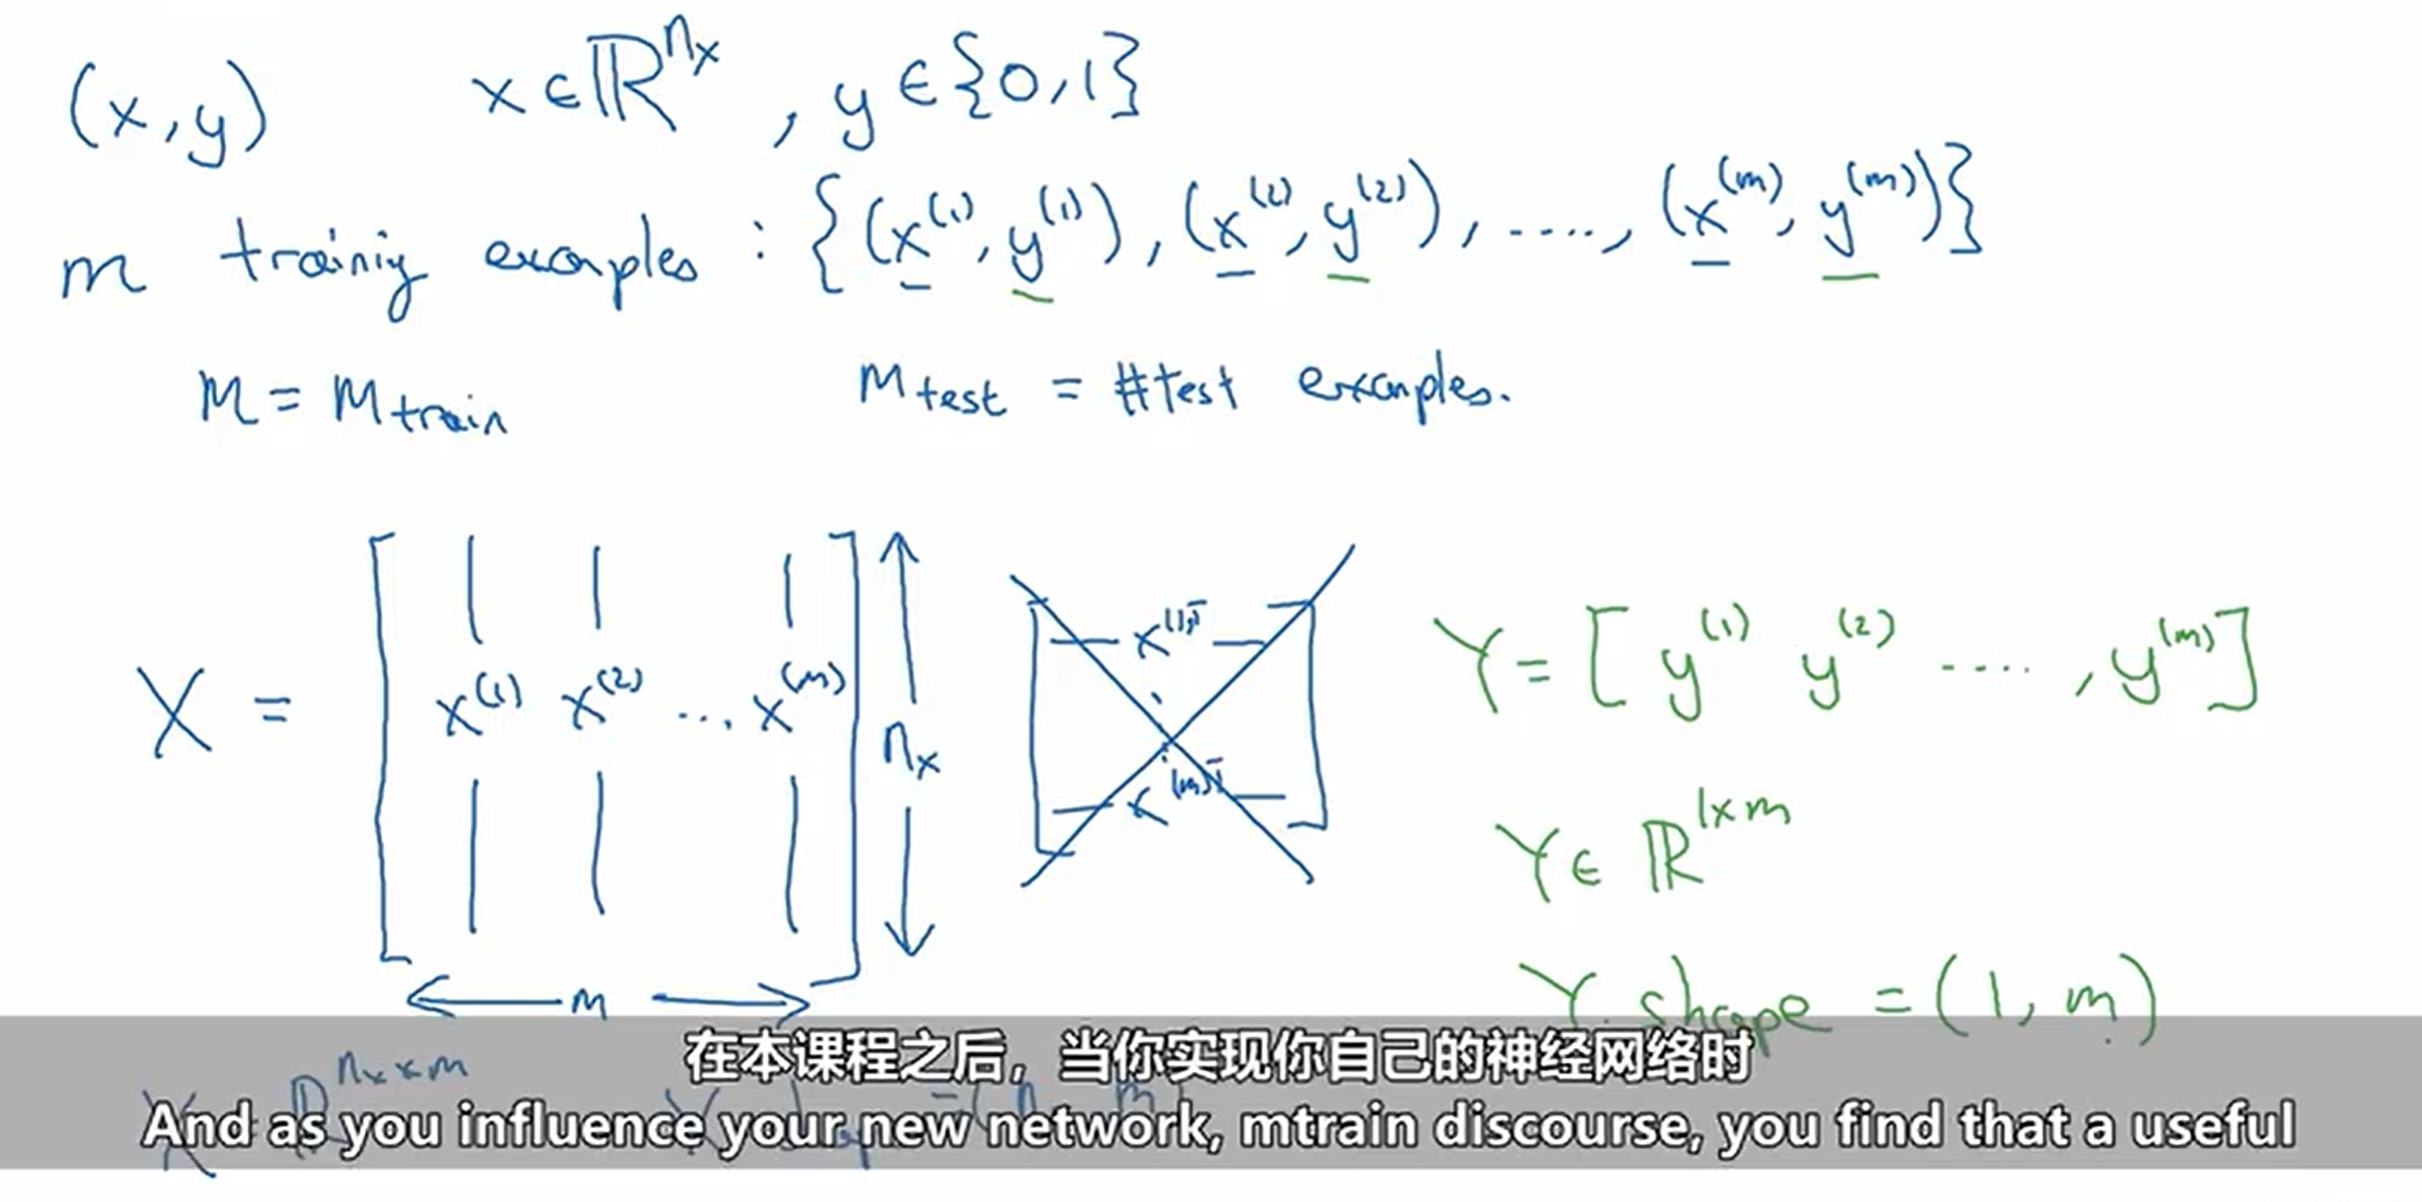 (x,y) x∈ℝ^{n_x}, y∈{0,1}
m training examples : {(x^{(1)}, y^{(1)}), (x^{(2)}, y^{(2)}), ...., (x^{(m)}, y^{(m)})}
M = M_{train} M_{test} = #test examples.
X = [ x^{(1)} x^{(2)} ... x^{(m)} ] n_x
m
x^{(1)T}
x^{(m)T}
Y = [ y^{(1)} y^{(2)} .... , y^{(m)} ]
Y ∈ ℝ^{1×m}
Y.shape = (1, m)
在本课程之后，当你实现你自己的神经网络时
X ℝ^{n_x×m}
And as you influence your new network, mtrain discourse, you find that a useful